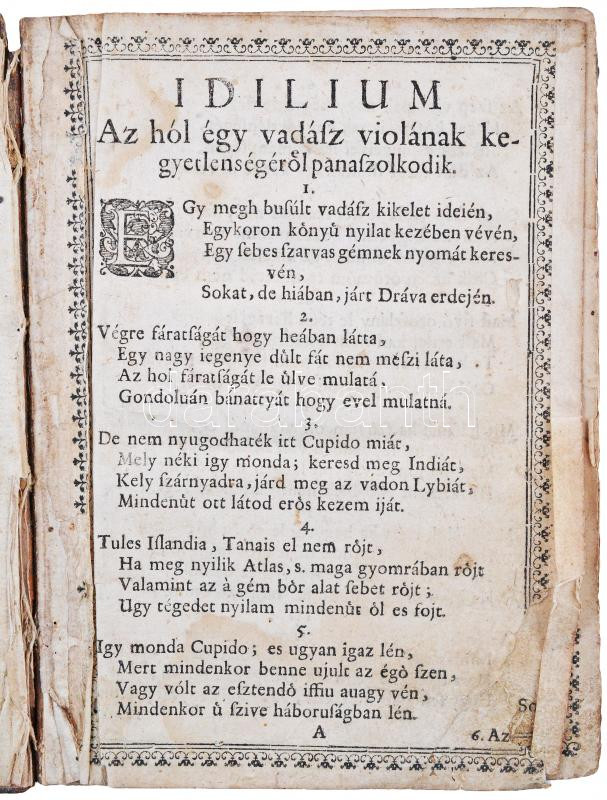 IDILIUM
Az hól égy vadáſz violának ke-
gyetlenségéről panaſzolkodik.
1.
EGy megh buſúlt vadáſz kikelet ideién,
Egykoron kőnyű nyilat kezében vévén,
Egy ſebes ſzarvas gémnek nyomát keres-
vén,
Sokat, de hiában, járt Dráva erdején.
2.
Végre fáratſágát hogy heában látta,
Egy nagy iegenye dűlt fát nem méſzi láta,
Az hol fáratſágát le űlve mulatá.
Gondoluán bánattyát hogy evel mulatná.
3.
De nem nyugodhaték itt Cupido miát,
Mely néki igy monda; keresd meg Indiát,
Kely ſzárnyadra, járd meg az vadon Lybiát,
Mindenűt ott látod erős kezem iját.
4.
Tules Iſlandia, Tanais el nem rőjt,
Ha meg nyilik Atlas, s. maga gyomrában rőjt
Valamint az à gém bőr alat ſebet rőjt;
Ugy tégedet nyilam mindenűt ól es fojt.
5.
Igy monda Cupido; es ugyan igaz lén,
Mert mindenkor benne ujult az égő ſzen,
Vagy vólt az eſztendő iffiu auagy vén,
Mindenkor ű ſzive háboruſágban lén.
So
A
6. Az
darabanth